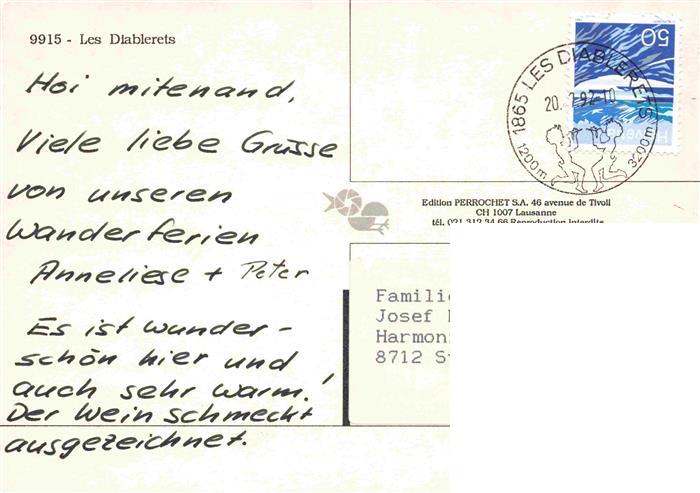 9915 - Les Diablerets
Hoi mitenand,
Viele liebe Grüsse
von unseren
Wanderferien
Anneliese + Peter
Es ist wunder-
schön hier und
auch sehr warm!
Der Wein schmeckt
ausgezeichnet.
1865 LES DIABLERETS
1200m
3200m
50
Edition PERROCHET S.A. 46 avenue de Tivoli
CH 1007 Lausanne
tél. 021 312 34 66 Reproduction interdite
Familie
Josef
8712